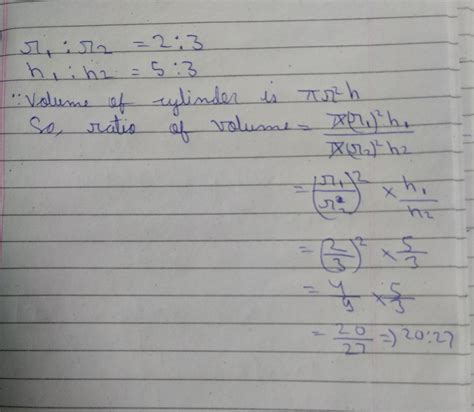 r₁ : r₂ = 2 : 3
h₁ : h₂ = 5 : 3
∵ Volume of cylinder is πr²h
So, ratio of volume = π(r₁)²h₁ / π(r₂)²h₂
= (r₁/r₂)² × h₁/h₂
= (2/3)² × 5/3
= 4/9 × 5/3
= 20/27 => 20:27